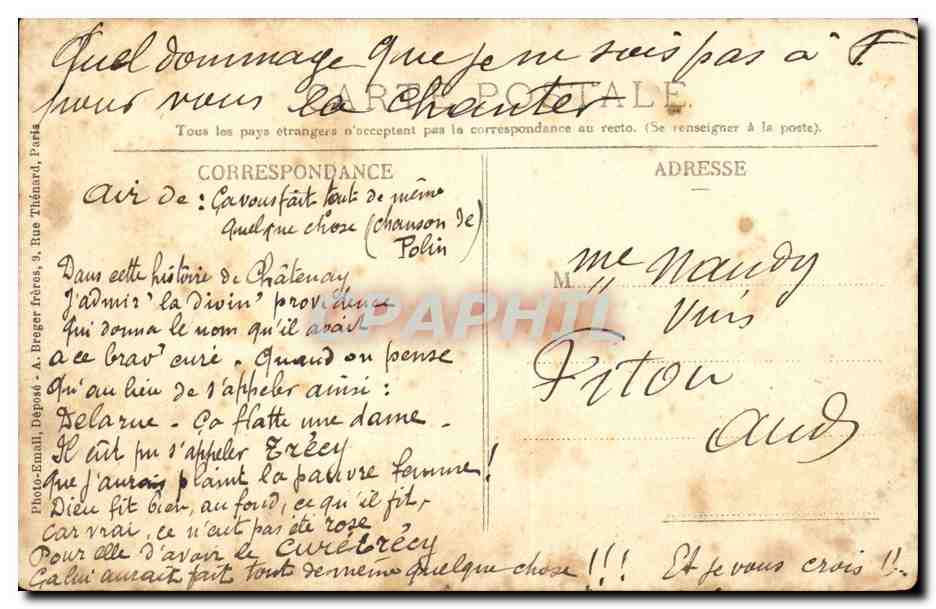 Quel dommage que je ne sois pas à F
pour vous la chanter
CARTE POSTALE
Tous les pays étrangers n'acceptent pas la correspondance au recto. (Se renseigner à la poste).
CORRESPONDANCE
ADRESSE
air de : Ça vous fait tout de même
quelque chose (chanson de
Polin)
Dans cette histoire de Châtenay
J'admir' la divin' providence
Qui donna le nom qu'il avait
a ce brav' curé. Quand on pense
Qu'au lieu de s'appeler ainsi :
Delarue - Ça flatte une dame -
Il eût pu s'appeler Trécy
Que j'aurais plaint la pauvre femme !
Dieu fit bien, au fond, ce qu'il fit,
Car vrai, ce n'eut pas été rose
Pour elle d'avoir le Curé Trécy
Ça lui aurait fait tout de même quelque chose !!! Et je vous crois !!
M me Naudy
Vins
Fitou
Aude
Photo-Email, Déposé - A. Breger frères, 9, Rue Thénard, Paris
CPAPHIL